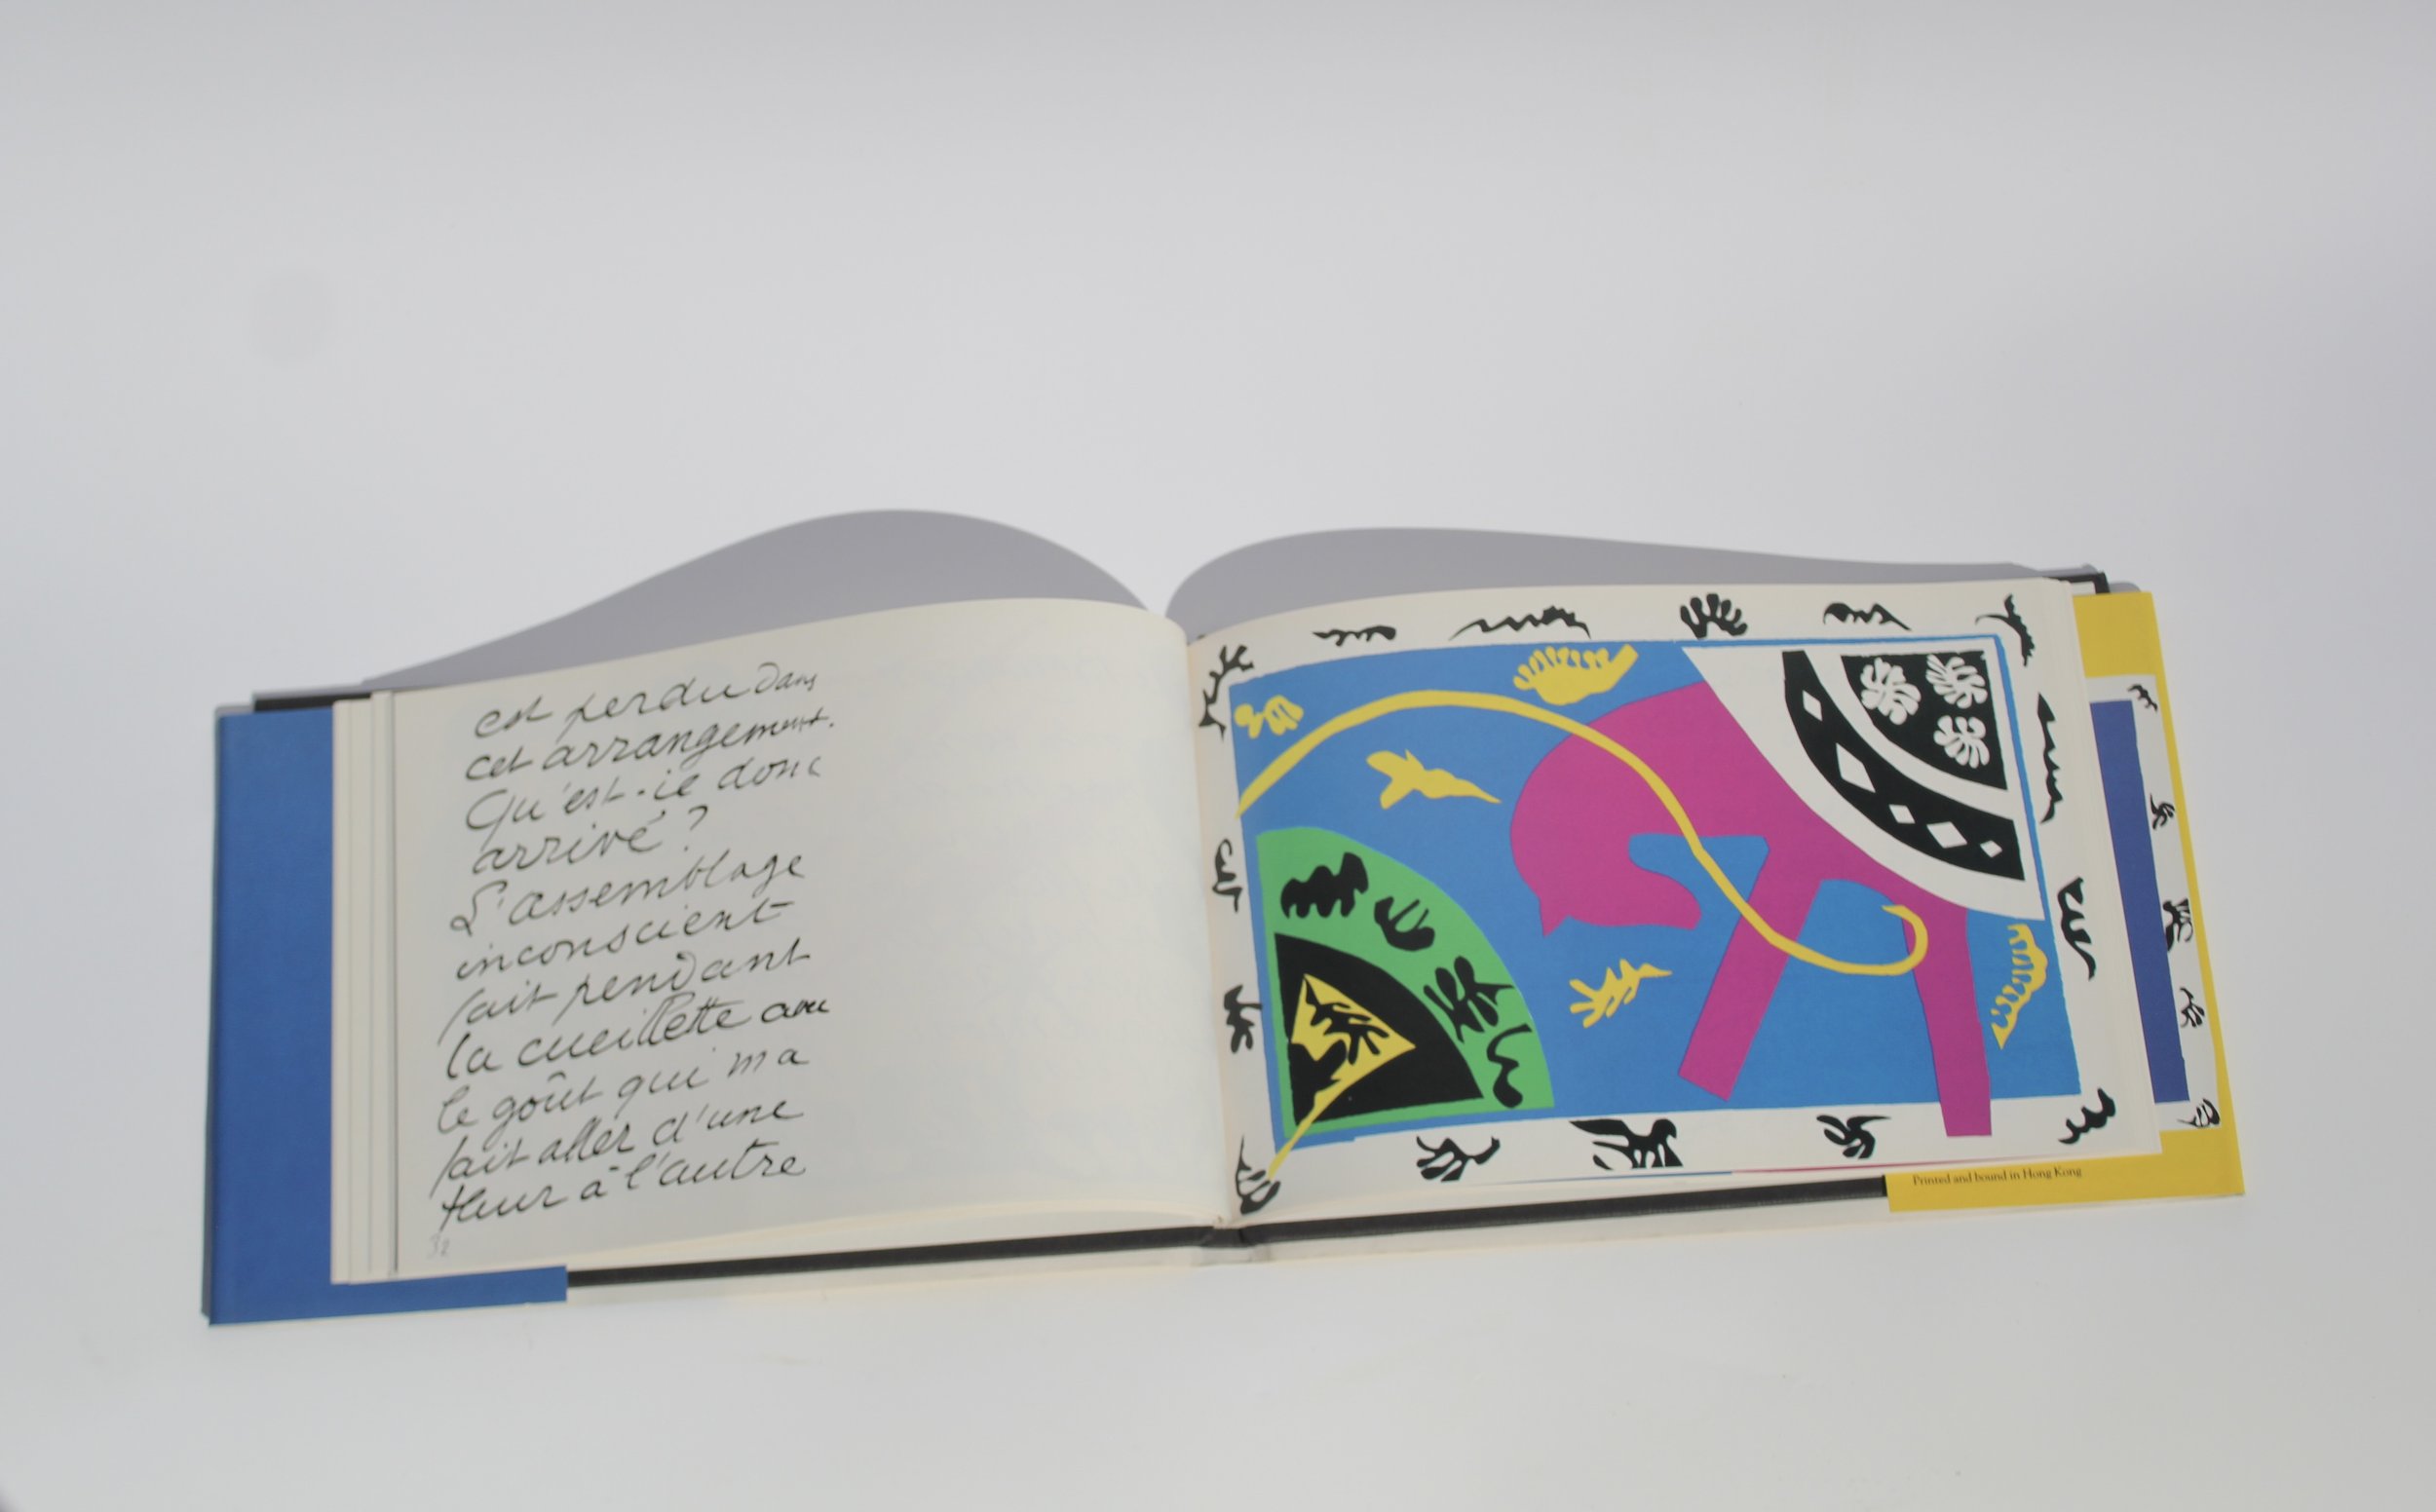 est perdu dans
cet arrangement.
Qu'est-il donc
arrivé ?
L'assemblage
inconscient
fait pendant
la cueillette avec
le goût qui m'a
fait aller d'une
fleur à l'autre
32
Printed and bound in Hong Kong